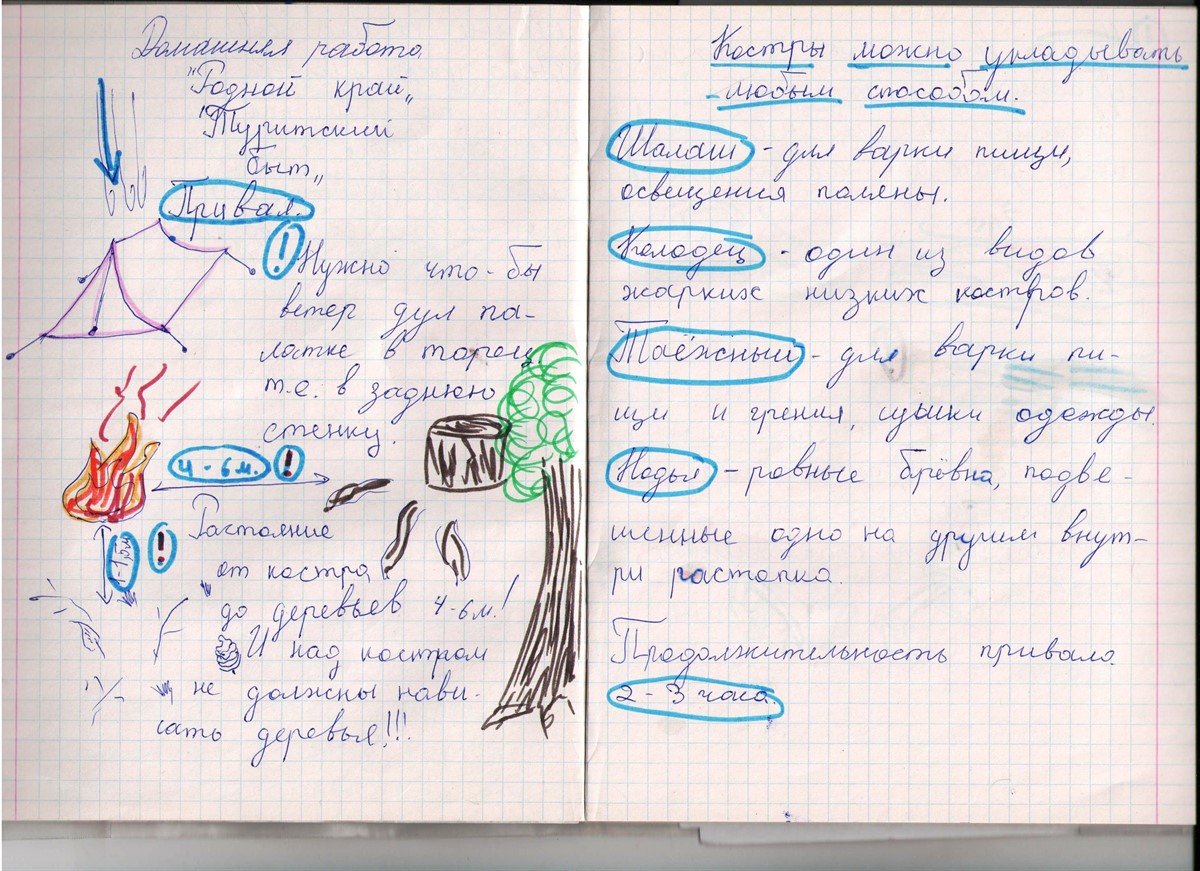 Домашняя работа.
"Родной край„
"Туритский
быт„
Привал.
! Нужно что-бы
ветер дул па-
латке в торец
т.е. в заднюю
стенку.
4-6м. !
Растояние
от костра
до деревьев 4-6м!
И над костром
не должны нави-
сать деревья!!!
!
Костры можно укладывать
любым способом.
Шалаш - для варки пищи,
освещения поляны.
Колодец - один из видов
жарких низких костров.
Таёжный - для варки пи-
щи и грения, сушки одежды.
Нодья - ровные брёвна, подве-
шенные одно на другим внут-
ри растопка.
Продолжительность привала
2-3 часа.